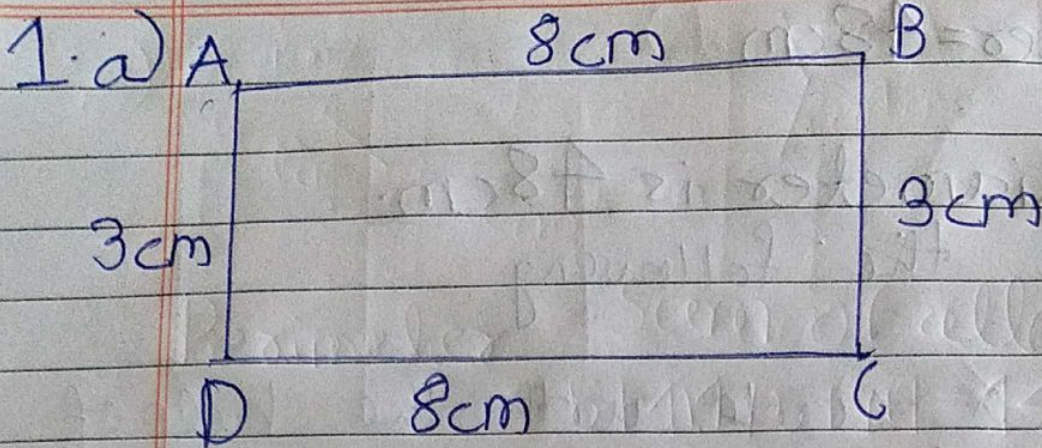 1.a) A 8cm B
3cm 3cm
D 8cm C